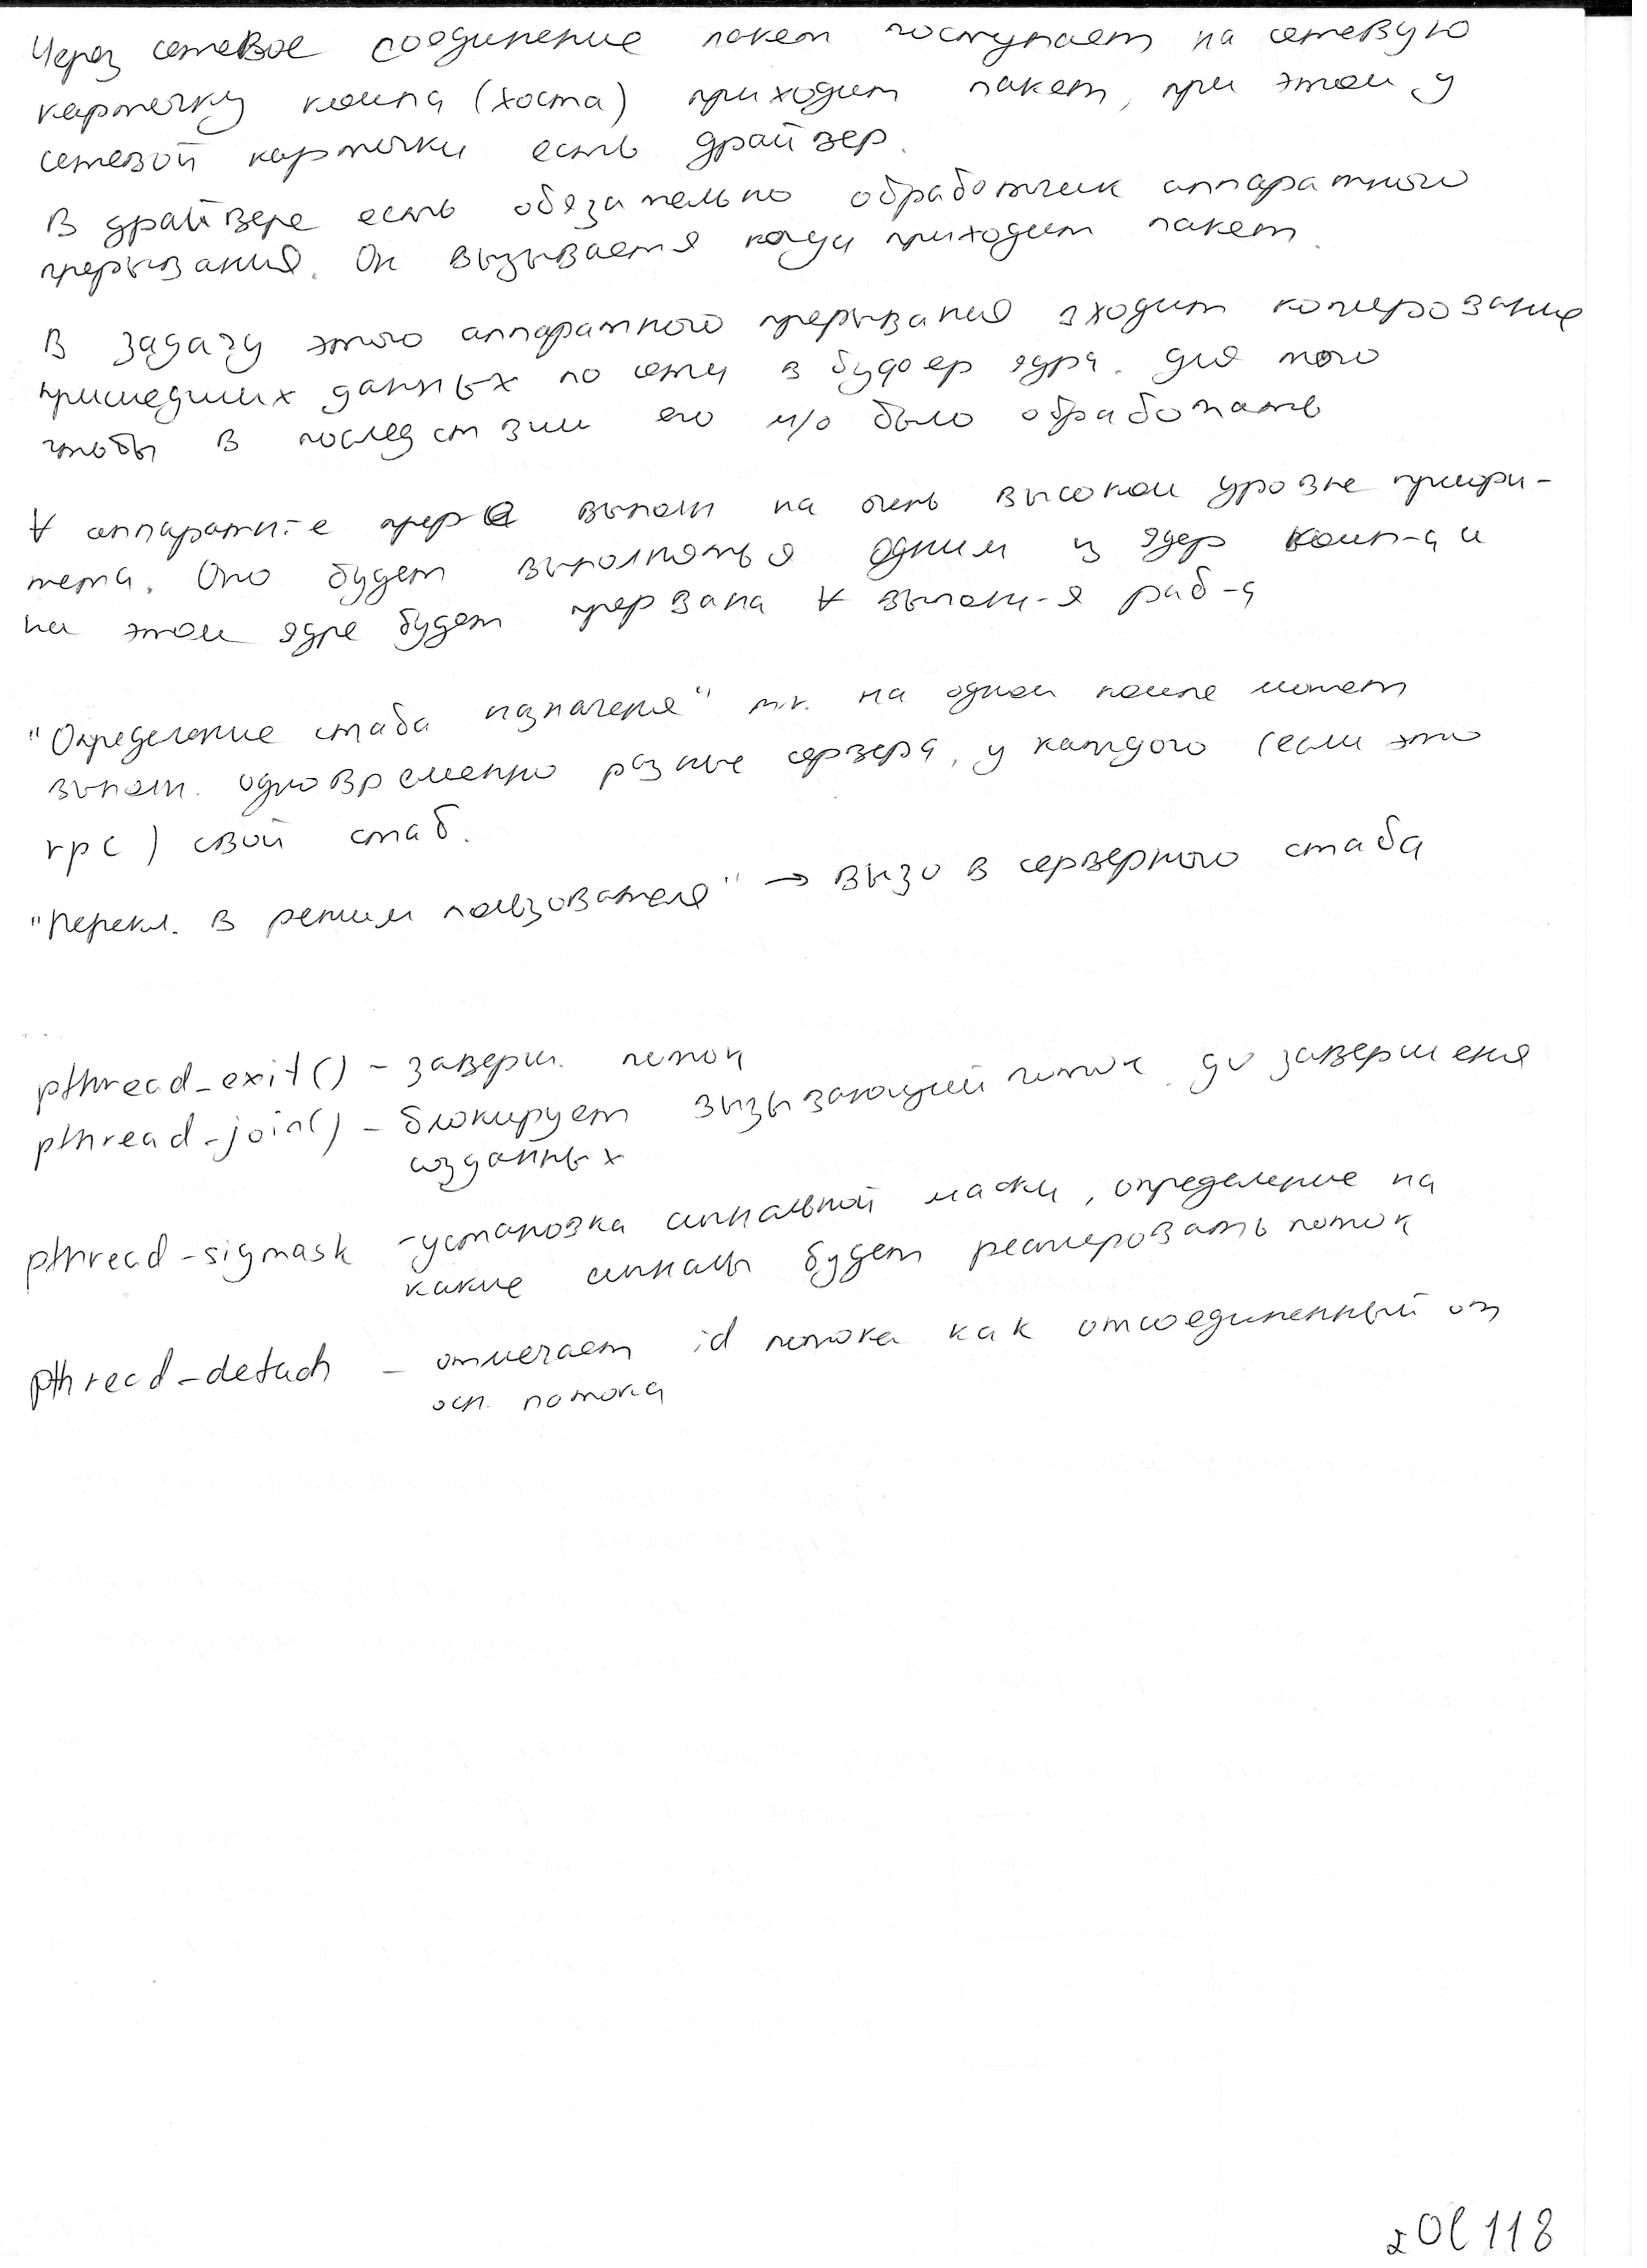 Через сетевое соединение пакет поступает на сетевую
карточку компа (хоста) приходит пакет, при этом у
сетевой карточки есть драйвер.
В драйвере есть обязательно обработчик аппаратного
прерывания. Он вызывается когда приходит пакет.
В задачу этого аппаратного прерывания входит копирование
пришедших данных по сети в буфер ядра. для того
чтобы в последствии его м/о было обработать
∀ аппаратн-е прер выполн на очень высоком уровне приори-
тета. Оно будет выполняться одним из ядер комп-а и
на этом ядре будет прервана ∀ выполн-я раб-а
"Определение стаба назначения" т.к. на одном компе может
выполн. одновременно разные сервера, у каждого (если это
rpc) свой стаб.
"Перекл. в режим пользователя" → вызов серверного стаба
pthread_exit() - заверш. поток
pthread-join() - блокирует вызывающий поток до завершения
созданных
pthread-sigmask - установка сигнальной маски, определение на
какие сигналы будет реагировать поток
pthread-detach - отмечает id потока как отсоединенный от
осн. потока